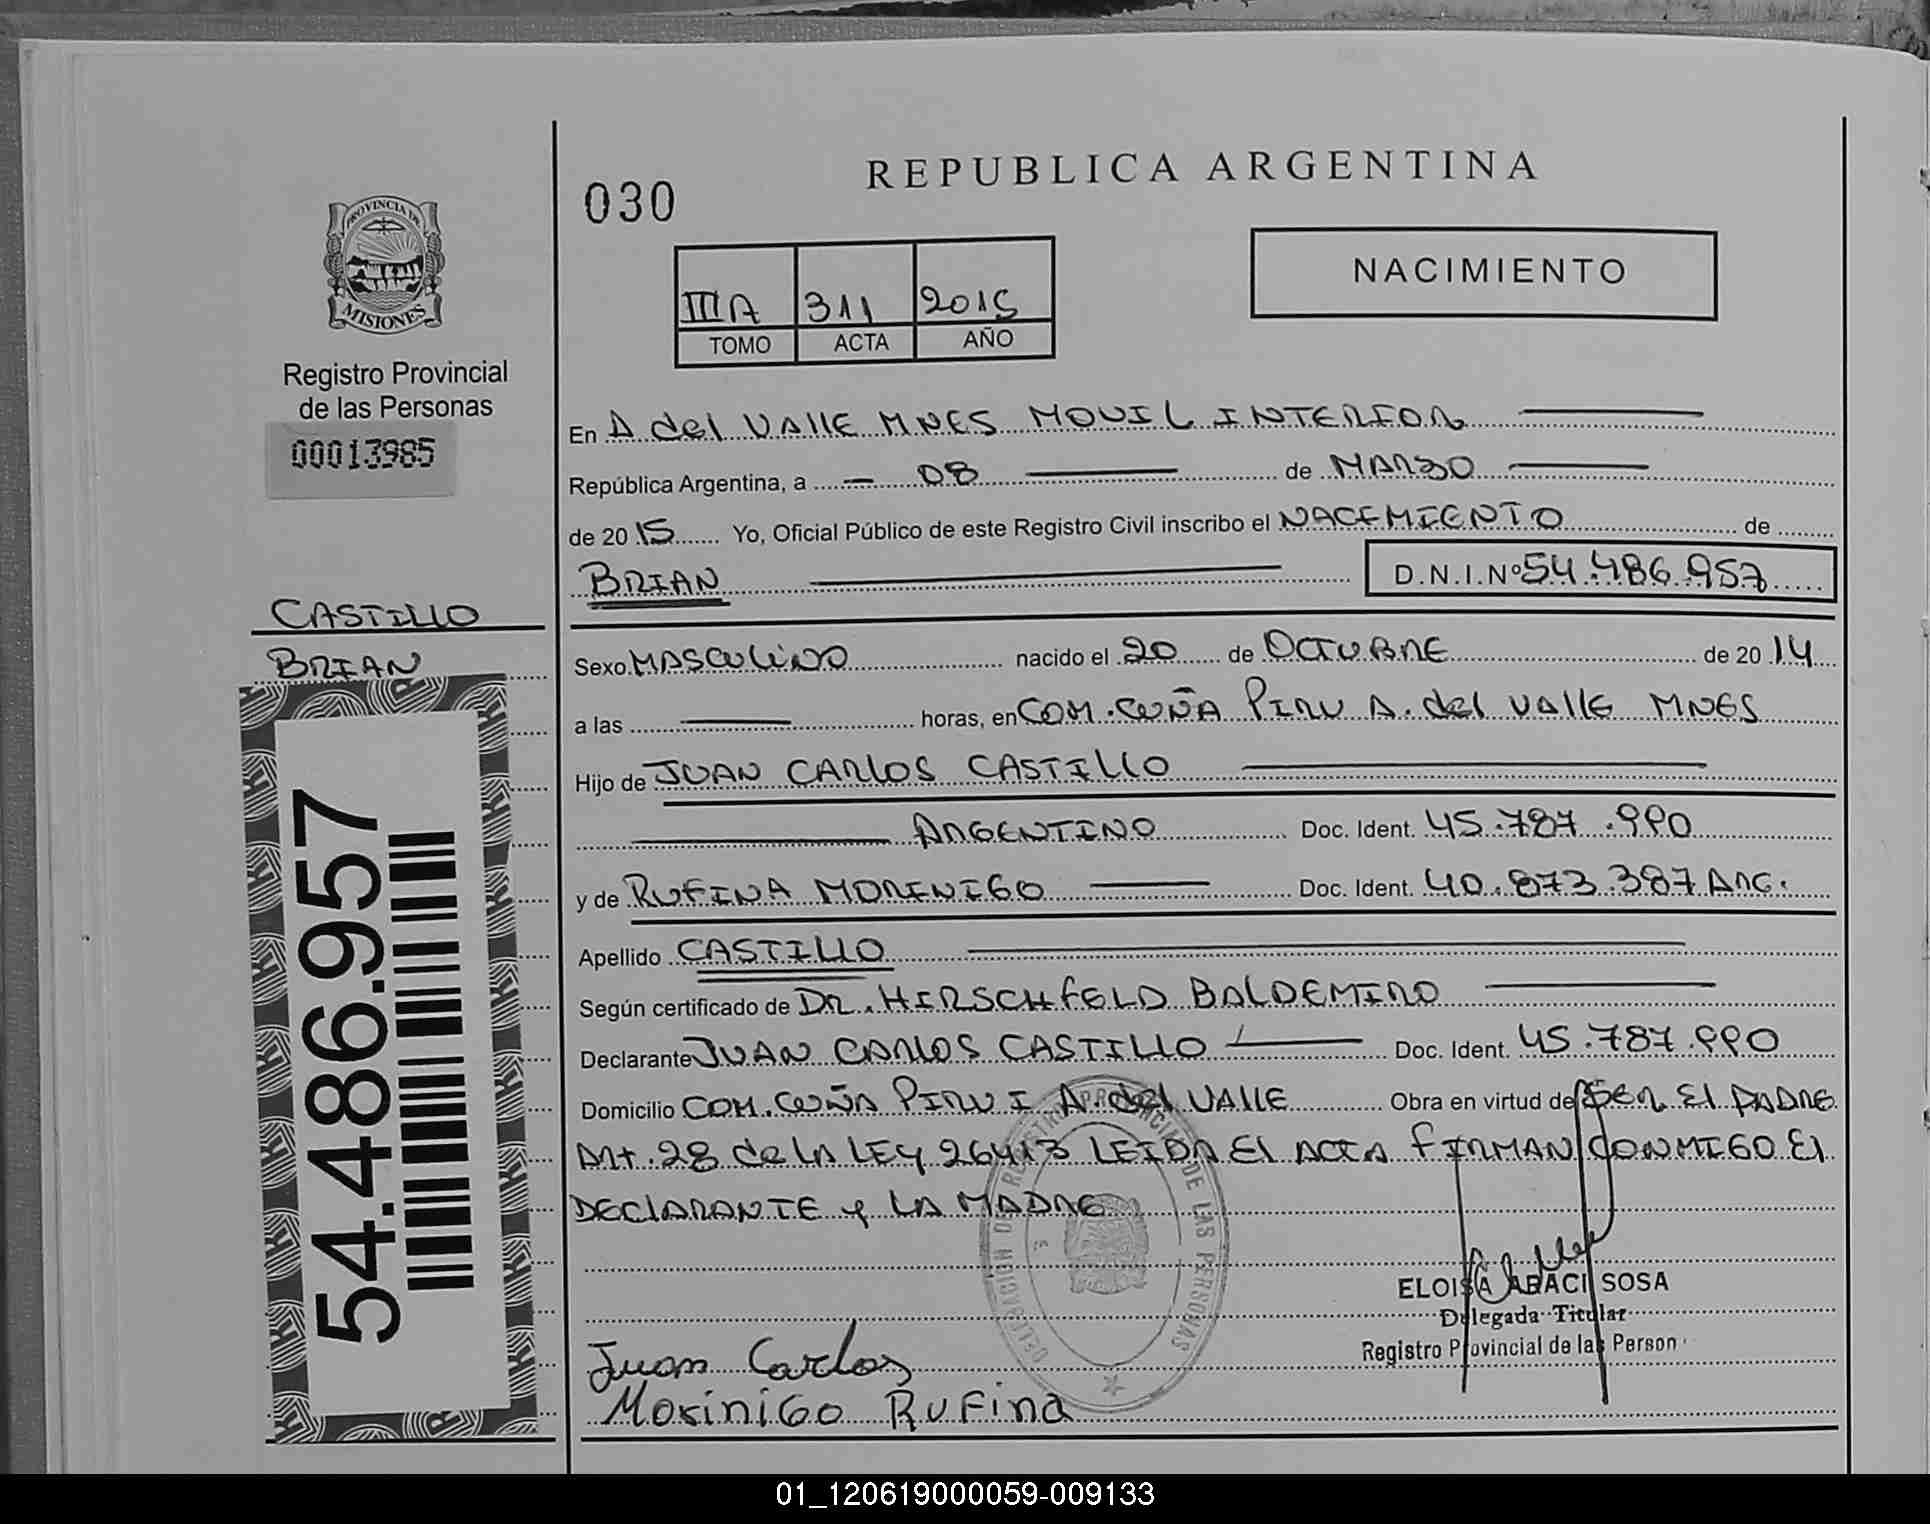 REPUBLICA ARGENTINA
030
NACIMIENTO
PROVINCIA DE
MISIONES
IIIA 311 2015
TOMO ACTA AÑO
Registro Provincial
de las Personas
00013985
En A del VALLE MNES MOVIL INTERIOR
República Argentina, a 08 de MARZO
de 2015 Yo, Oficial Público de este Registro Civil inscribo el NACIMIENTO de
BRIAN D.N.I.Nº 54.486.957
CASTILLO
BRIAN
54.486.957
Sexo MASCULINO nacido el 20 de OCTUBRE de 2014
a las horas, en COM. CUÑA PIRU A. del VALLE MNES
Hijo de JUAN CARLOS CASTILLO
ARGENTINO Doc. Ident. 45.787.990
y de RUFINA MORINIGO Doc. Ident. 40.873.387 ARG.
Apellido CASTILLO
Según certificado de DR. HIRSCHFELD BALDEMIRO
Declarante JUAN CARLOS CASTILLO Doc. Ident. 45.787.990
Domicilio COM. CUÑA PIRU I A. del VALLE Obra en virtud de SER El PADRE
Art. 28 de LA LEY 26413 LEIDA El ACTA FIRMAN CONMIGO El
DECLARANTE y LA MADRE
DELEGACION DEL REGISTRO PROVINCIAL DE LAS PERSONAS
ELOISA ARACI SOSA
Delegada Titular
Registro Provincial de las Person
Juan Carlos
Morinigo Rufina
01_120619000059-009133